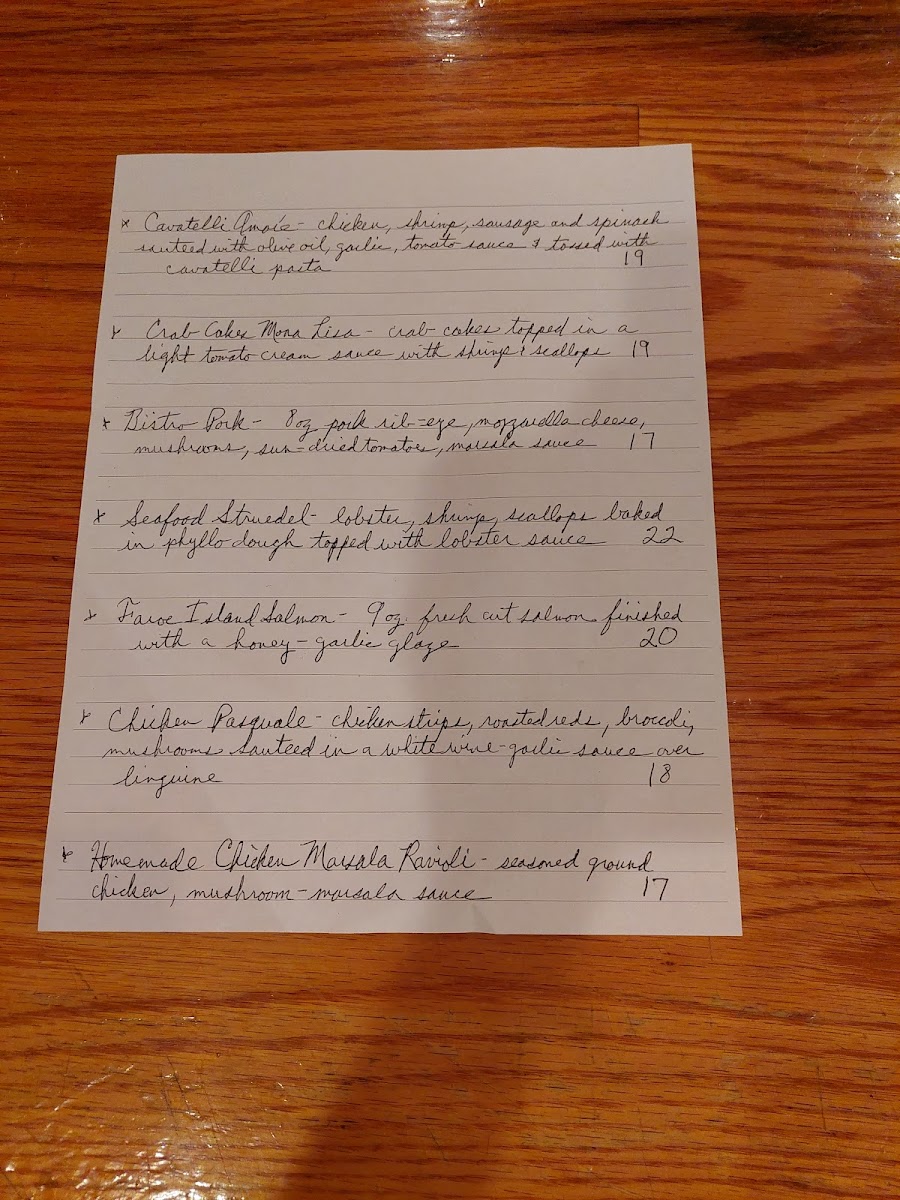 * Cavatelli Amore - chicken, shrimp, sausage and spinach
sauteed with olive oil, garlic, tomato sauce & tossed with
cavatelli pasta 19
* Crab Cakes Mona Lisa - crab cakes topped in a
light tomato cream sauce with shrimp & scallops 19
* Bistro Pork - 8oz pork rib-eye, mozzarella cheese,
mushrooms, sun-dried tomatoes, marsala sauce 17
* Seafood Struedel - lobster, shrimp, scallops baked
in phyllo dough topped with lobster sauce 22
* Faroe Island Salmon - 9 oz. fresh cut salmon finished
with a honey-garlic glaze 20
* Chicken Pasquale - chicken strips, roasted reds, broccoli,
mushrooms sauteed in a white wine-garlic sauce over
linguine 18
* Homemade Chicken Marsala Ravioli - seasoned ground
chicken, mushroom-marsala sauce 17